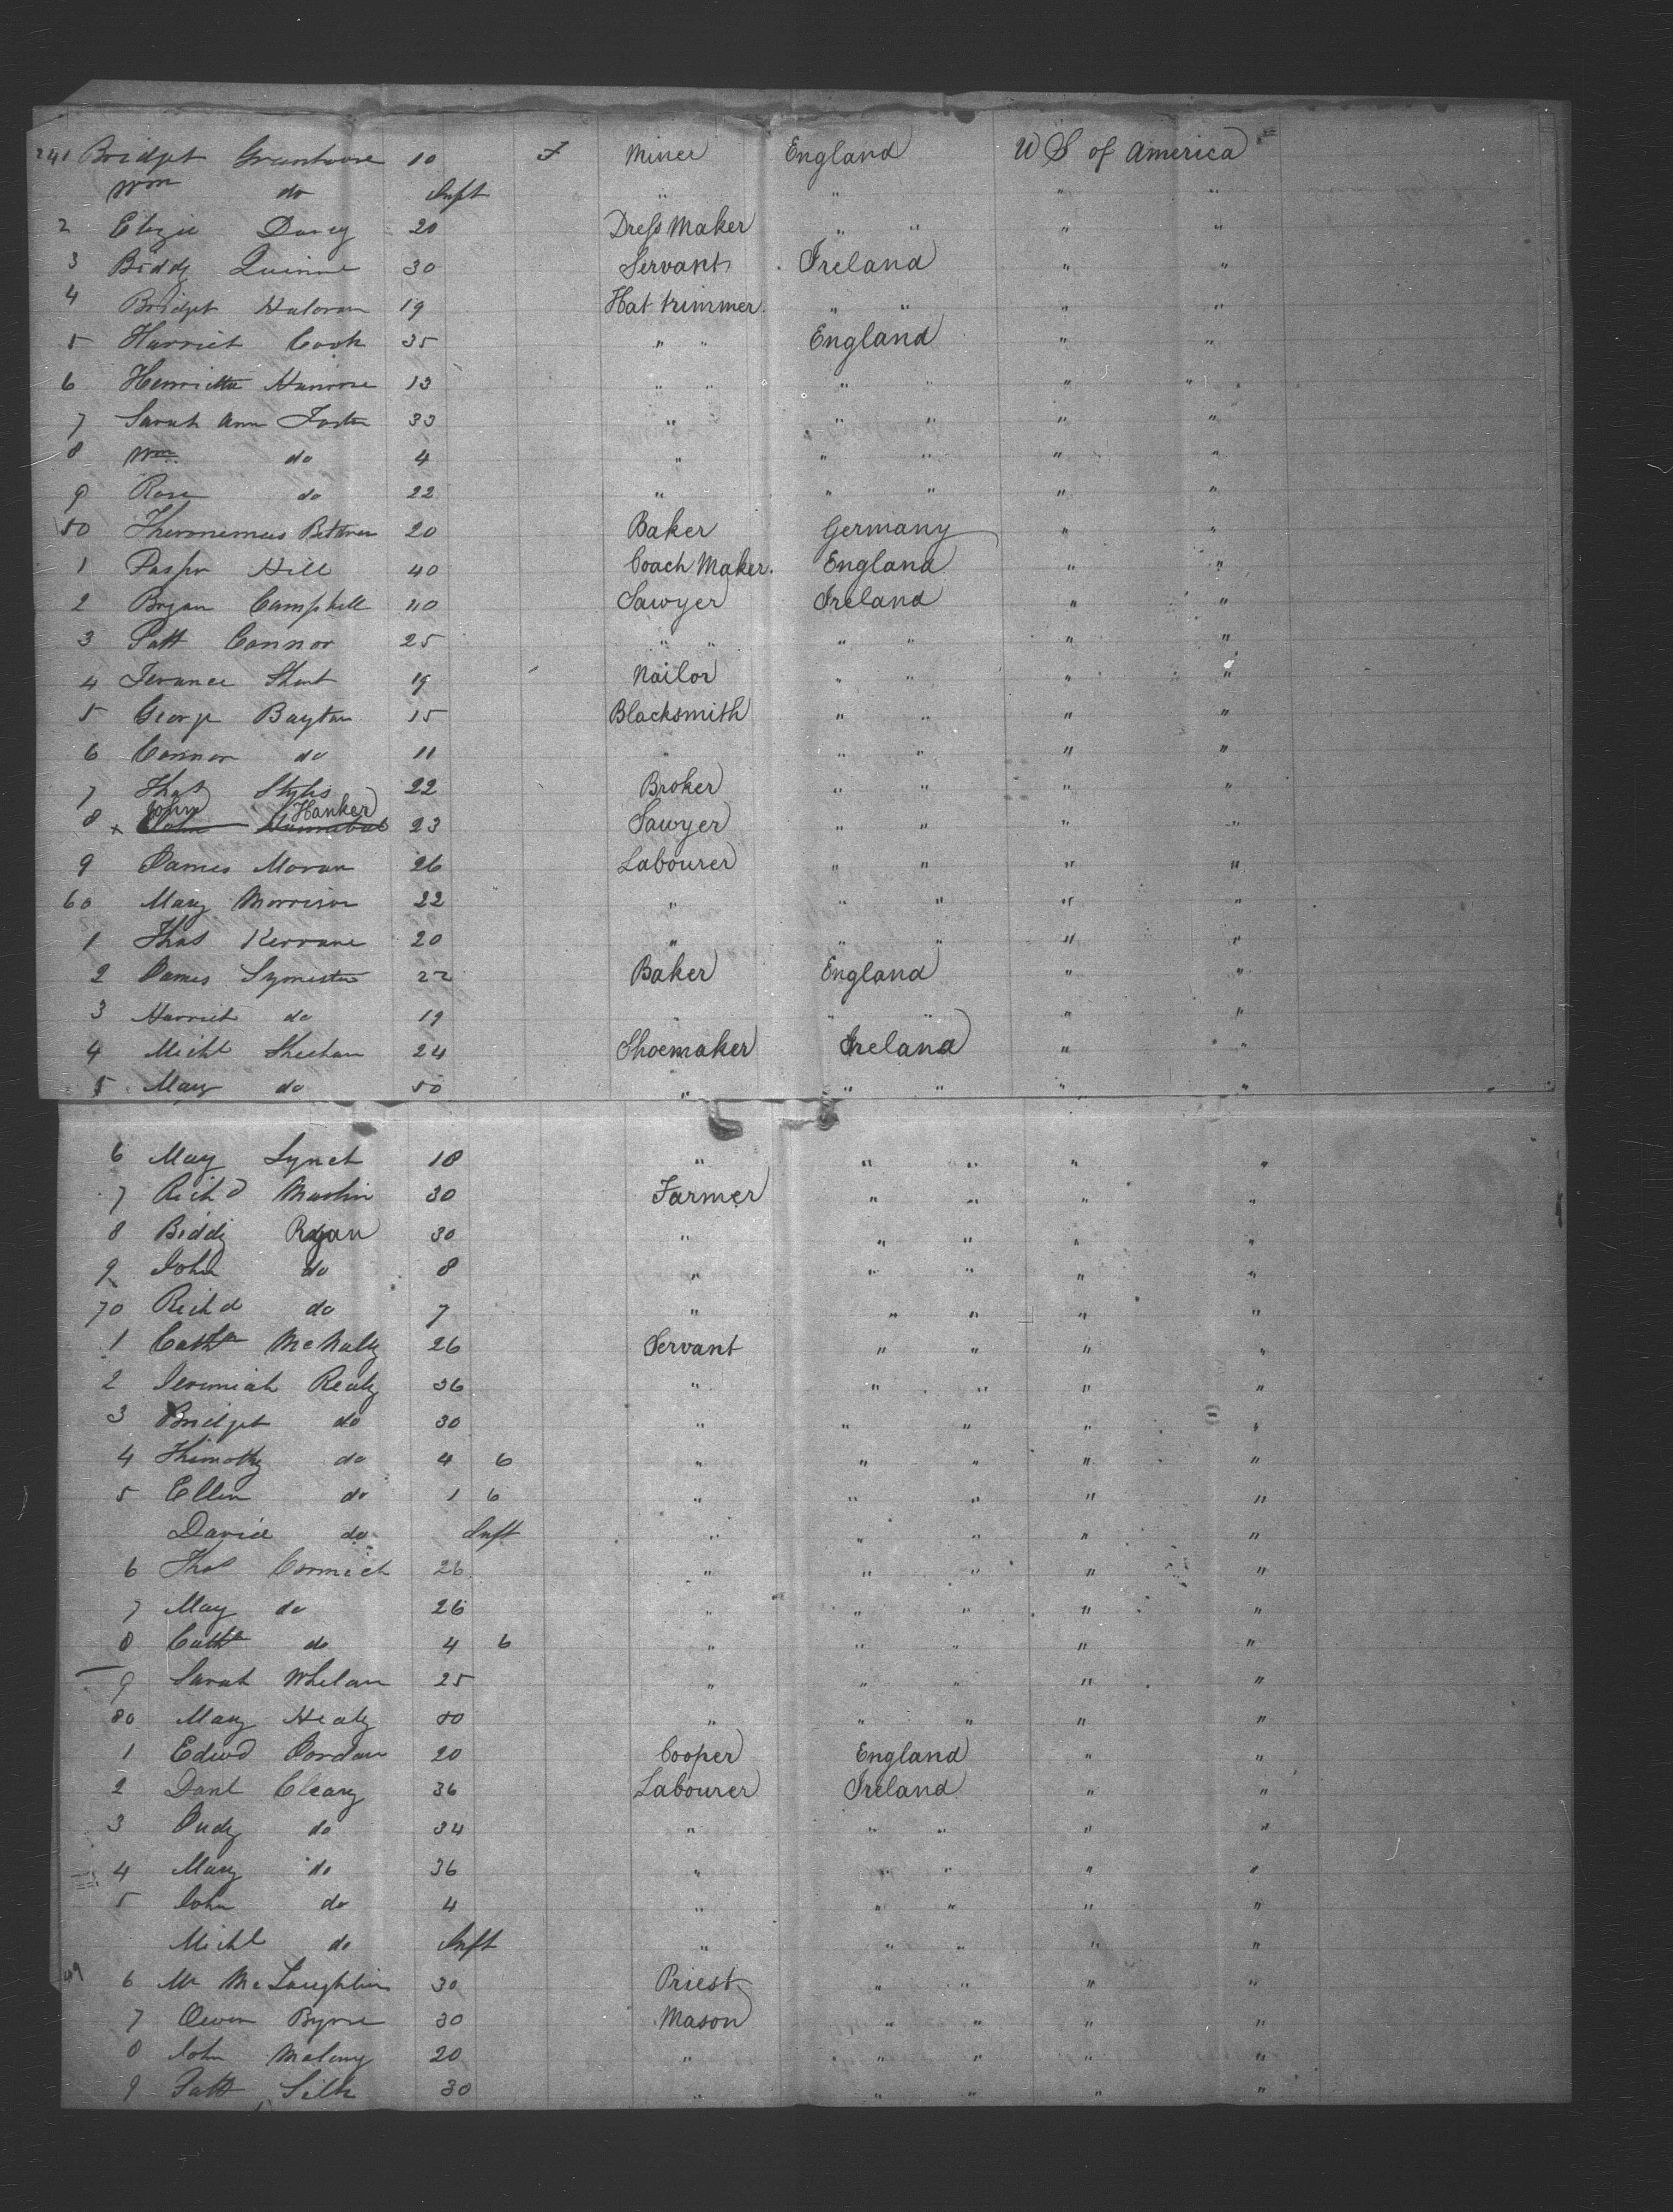 241 Bridget 10 F Miner England U S of America
Wm do Inft " " " "
2 Eliza Darcy 20 Dress Maker " " " "
3 Biddy Quinn 30 Servant Ireland " "
4 Bridget Haloran 19 Hat trimmer " " " "
5 Harriet Cook 35 " " England " "
6 Henrietta 13 " " " " " "
7 Sarah Ann Foster 33 " " " " "
8 Wm do 4 " " " " "
9 Rose do 22 " " " " "
50 20 Baker Germany " "
1 Hill 40 Coach Maker England " "
2 Bryan Campbell 40 Sawyer Ireland " "
3 Patt Connor 25 " " " " " "
4 Terance Short 19 Nailor " " " "
5 George Bayton 15 Blacksmith " " " "
6 Connor do 11 " " " " "
7 Thos Styles 22 Broker " " " "
John Hanker
8 x John 23 Sawyer " " " "
9 James Moran 26 Labourer " " " "
60 Mary Morrison 22 " " " " "
1 Thos Kerrane 20 " " " " "
2 James 22 Baker England " "
3 Harriet do 19 " " " " "
4 Michl Sheehan 24 Shoemaker Ireland " "
5 Mary do 50 " " " " "
6 Mary Lynch 18 " " " " "
7 Richd Martin 30 Farmer " " " "
8 Biddy Ryan 30 " " " " "
9 John do 8 " " " " "
70 Richd do 7 " " " " "
1 Cathe McNally 26 Servant " " " "
2 Jeremiah Ready 36 " " " " "
3 Bridget do 30 " " " " "
4 Thimothy do 4 6 " " " " "
5 Ellen do 1 6 " " " " "
David do Inft " " " " "
6 Thos Cormick 26 " " " " "
7 Mary do 26 " " " " "
8 Cathe do 4 6 " " " " "
9 Sarah Whelan 25 " " " " "
80 Mary Healy " " " " "
1 Edwd Jordan 20 Cooper England " "
2 Danl Cleary 36 Labourer Ireland " "
3 Judy do 34 " " " " "
4 Mary do 36 " " " " "
5 John do 4 " " " " "
Michl do Inft " " " " "
49 6 Mr McLaughlin 30 Priest " " " "
7 Owen Byrne 30 Mason " " " "
8 John Melony 20 " " " " "
9 Patt Silk 30 " " " " "